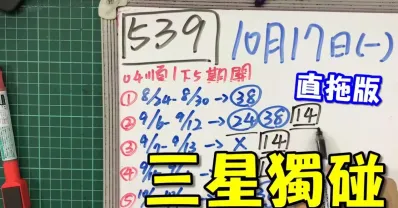 539
10月17日(一)
04順1下5期開
直拖版
① 8/24-8/30→38
② 9/6-9/12→24 38 14
③ 9/7-9/13→X 14
三星獨碰
④
⑤